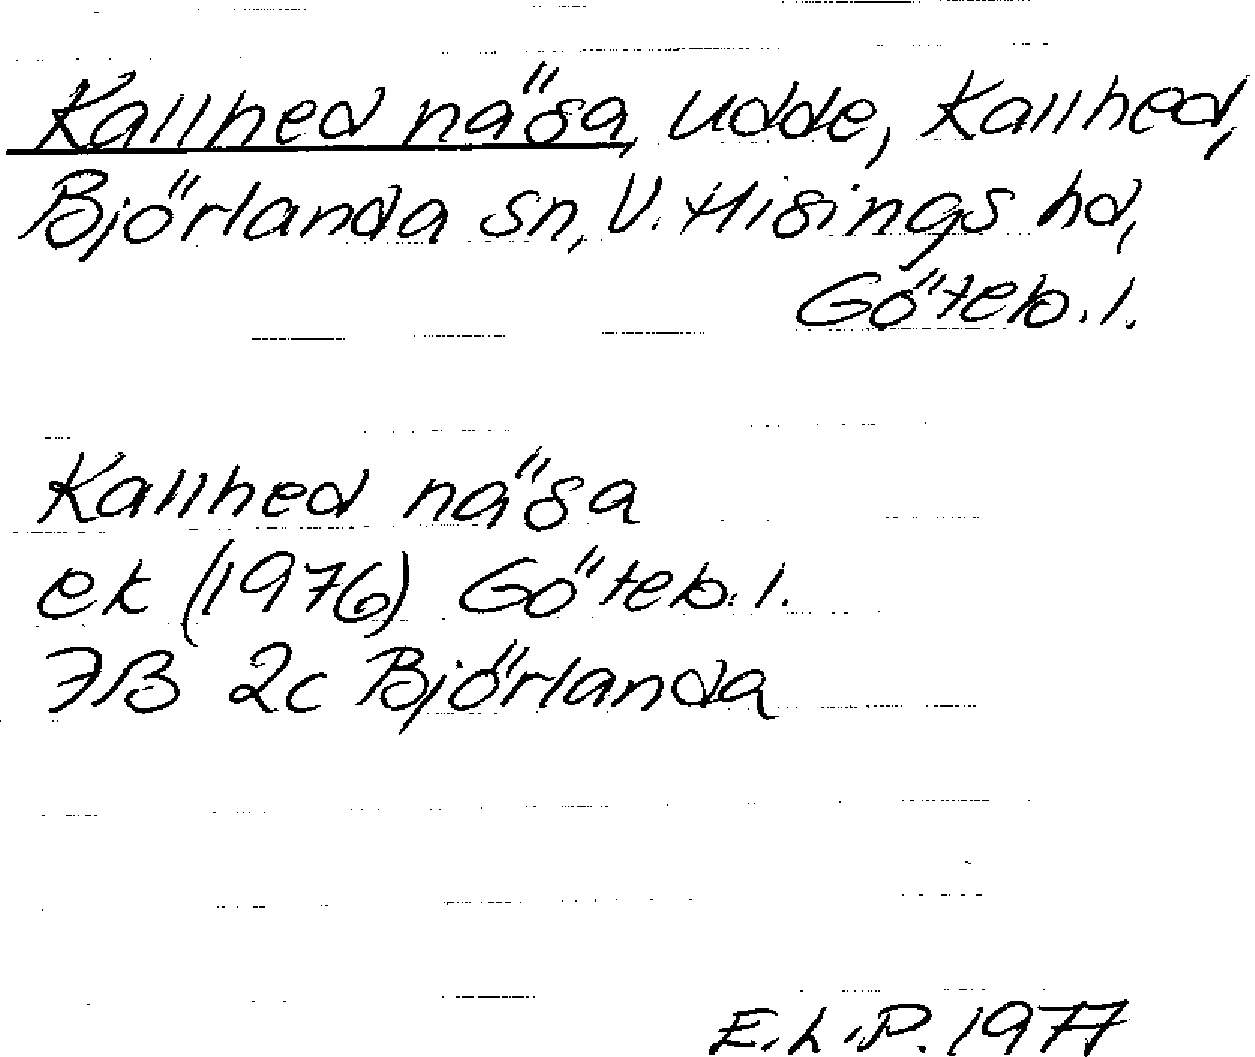 Kallhed näsa, udde, Kallhed,
Björlanda sn, V. Hisings hd,
Göteb. l.
Kallhed näsa
ek (1976) Göteb. l.
7B 2c Björlanda
E.L.P. 1977